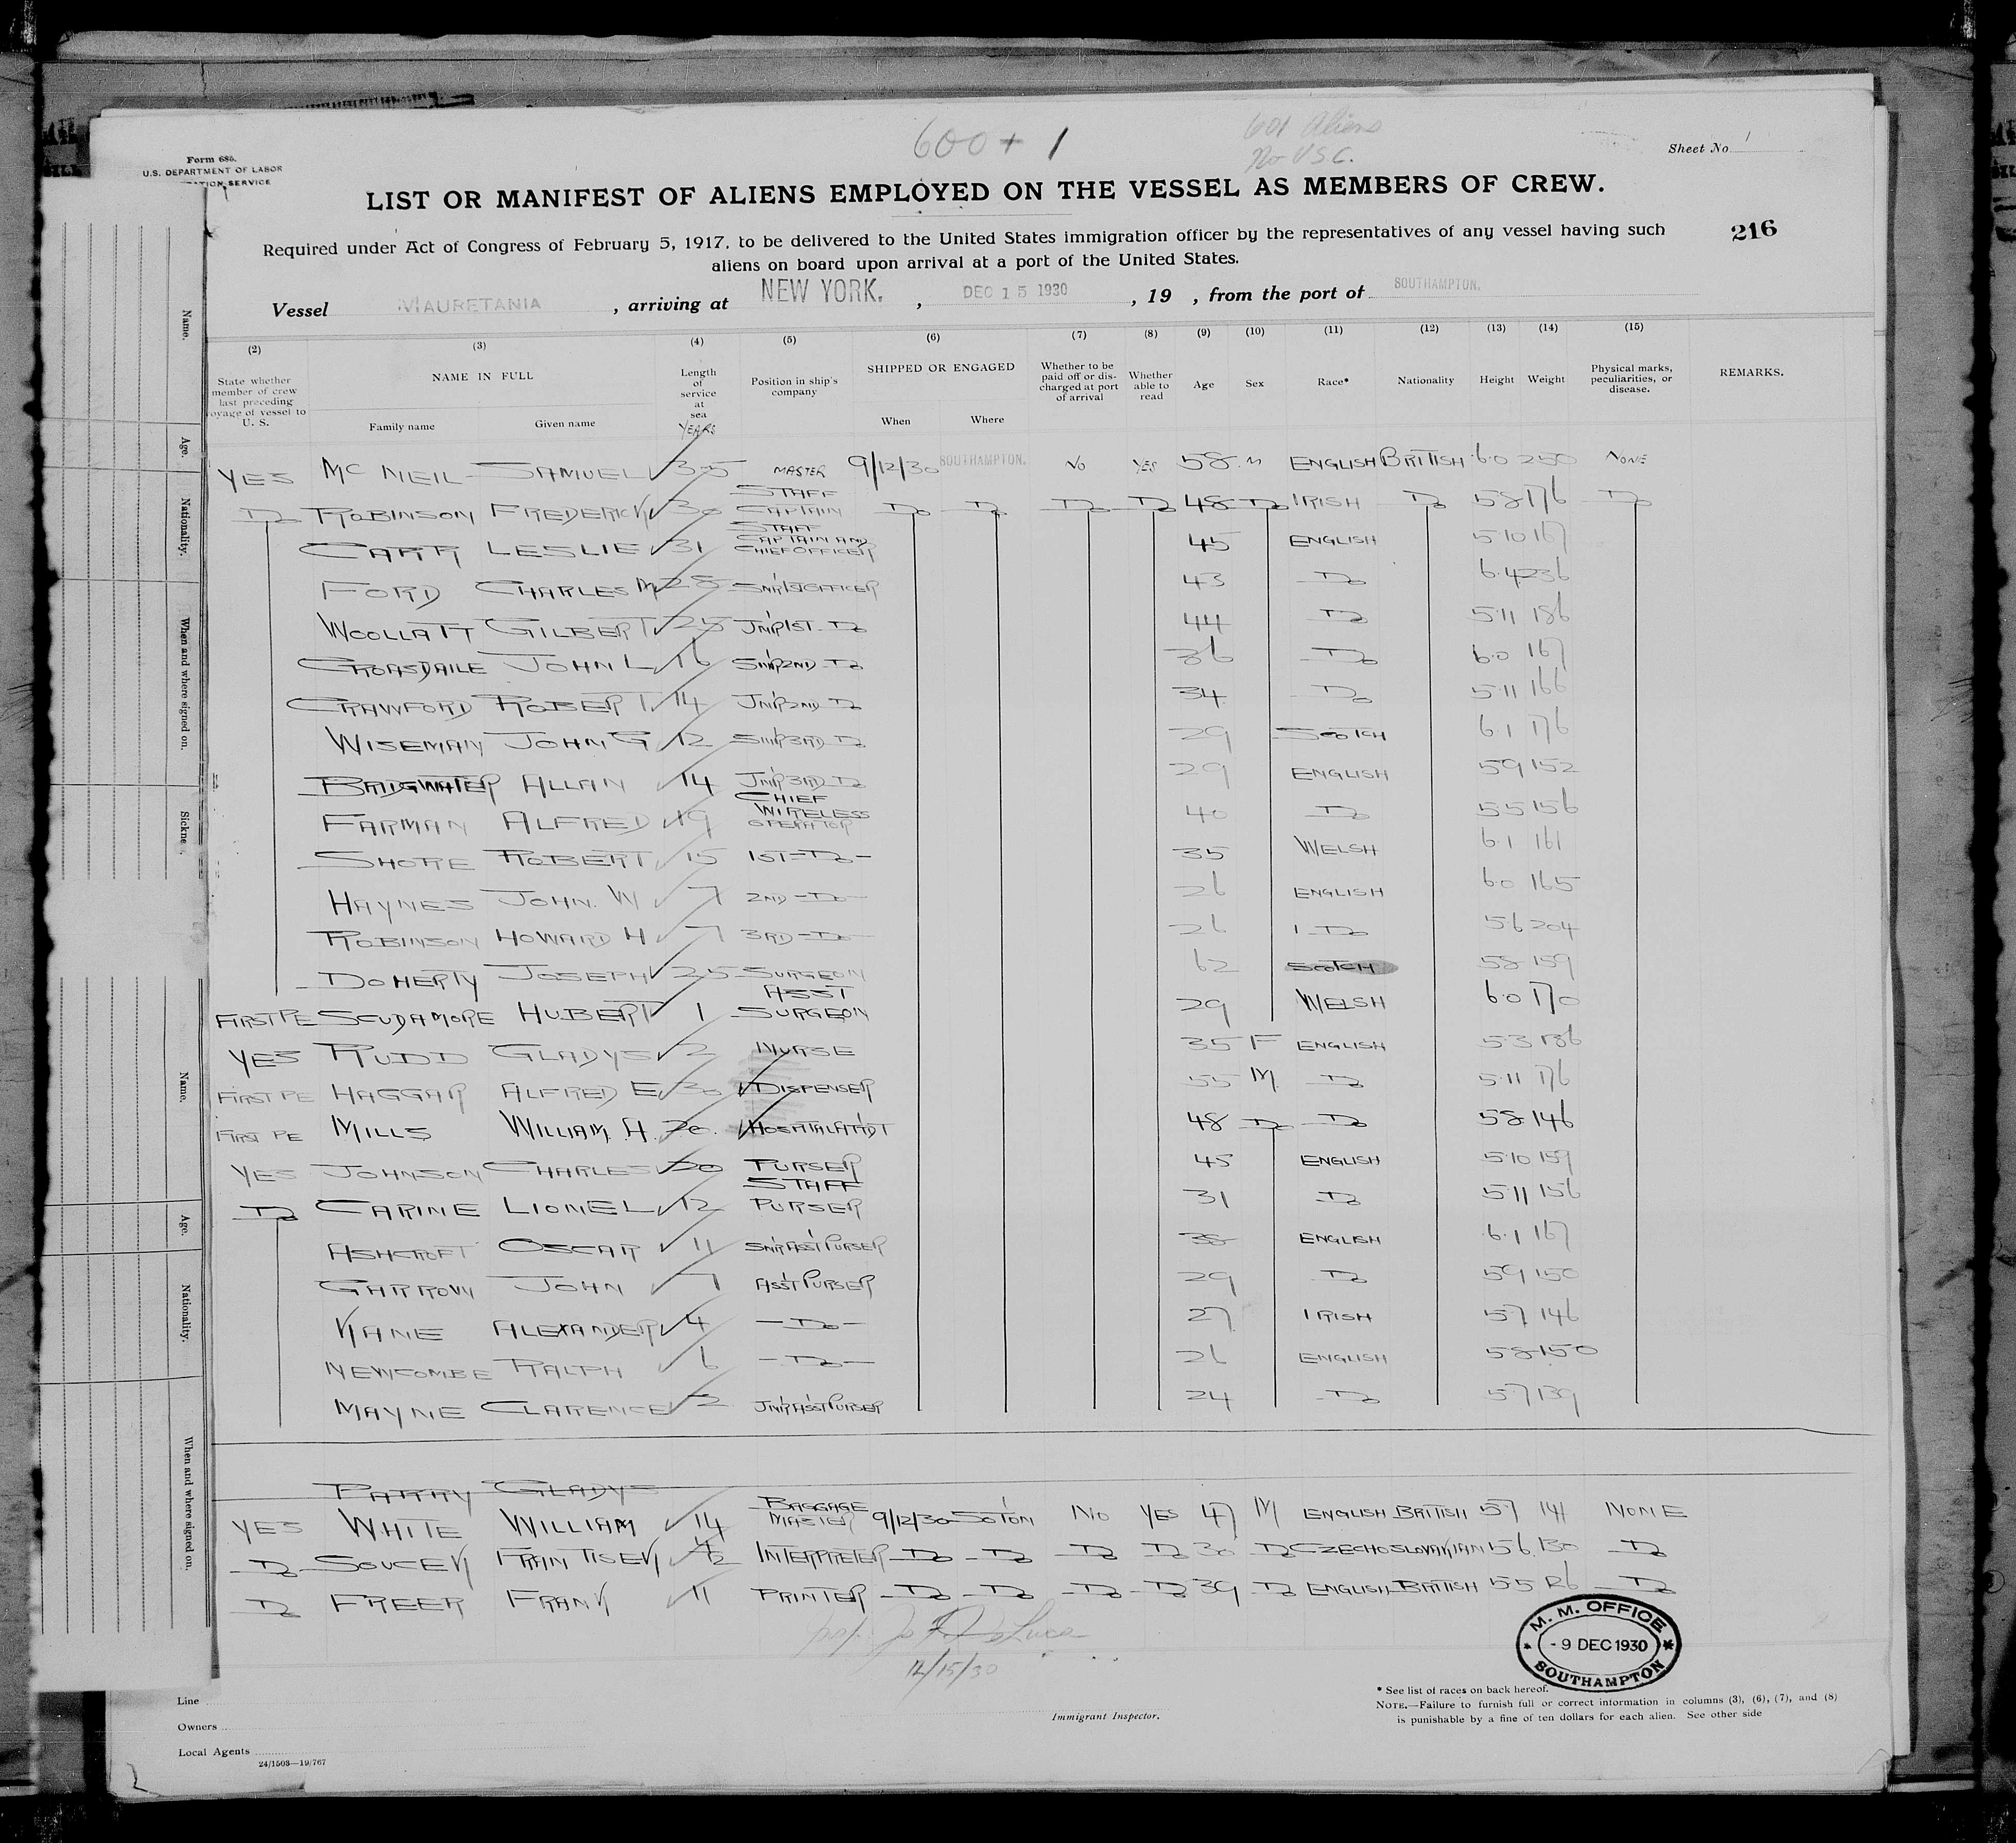 600 + 1
601 Aliens
No USC.
Sheet No 1
Form 685.
U.S. DEPARTMENT OF LABOR
SERVICE
LIST OR MANIFEST OF ALIENS EMPLOYED ON THE VESSEL AS MEMBERS OF CREW.
216
Required under Act of Congress of February 5, 1917, to be delivered to the United States immigration officer by the representatives of any vessel having such
aliens on board upon arrival at a port of the United States.
Vessel MAURETANIA, arriving at NEW YORK. , DEC 15 1930, 19 , from the port of SOUTHAMPTON.
(2) (3) (4) (5) (6) (7) (8) (9) (10) (11) (12) (13) (14) (15)
State whether member of crew last preceding oyage of vessel to U. S.
NAME IN FULL
Family name Given name
Length of service at sea
YEARS
Position in ship's company
SHIPPED OR ENGAGED
When Where
Whether to be paid off or dis-charged at port of arrival
Whether able to read
Age Sex Race* Nationality Height Weight
Physical marks, peculiarities, or disease.
REMARKS.
YES MC NEIL SAMUEL 35 MASTER 9/12/30 SOUTHAMPTON. NO YES 58 M ENGLISH BRITISH 6.0 250 NONE
DO ROBINSON FREDERICK 30 STAFF CAPTAIN DO DO DO DO 48 DO IRISH DO 5 8 176 DO
CARR LESLIE 31 STAFF CAPTAIN AND CHIEF OFFICER 45 ENGLISH 5.10 167
FORD CHARLES M 28 SNR 1ST OFFICER 43 DO 6.4 236
WOOLLATT GILBERT 25 JNR 1ST DO 44 DO 5.11 186
CROASDAILE JOHN L 16 SNR 2ND DO 36 DO 6.0 167
CRAWFORD ROBERT 14 JNR 2ND DO 34 DO 5.11 166
WISEMAN JOHN G 12 SNR 3RD DO 29 SCOTCH 6.1 176
BRIDGWATER ALLAN 14 JNR 3RD DO 29 ENGLISH 5 9 152
FARMAN ALFRED 19 CHIEF WIRELESS OPERATOR 40 DO 5 5 156
SHORE ROBERT 15 1ST DO 35 WELSH 6.1 161
HAYNES JOHN. W 7 2ND DO 26 ENGLISH 6.0 165
ROBINSON HOWARD H 7 3RD DO 26 DO 5.6 204
DOHERTY JOSEPH 25 SURGEON 62 SCOTCH 5 8 159
FIRST PE SCUDAMORE HUBERT 1 ASST SURGEON 29 WELSH 6.0 170
YES RUDD GLADYS 2 NURSE 35 F ENGLISH 5 3 186
FIRST PE HAGGAR ALFRED E 30 DISPENSER 55 M. DO 5.11 176
FIRST PE MILLS WILLIAM. H. 20. HOSPITAL ATTDT 48 DO DO 5 8 146
YES JOHNSON CHARLES 20 PURSER 45 ENGLISH 5.10 159
DO CARINE LIONEL 12 STAFF PURSER 31 DO 5.11 156
ASHCROFT OSCAR 11 SNR ASST PURSER 38 ENGLISH 6.1 167
GARROW JOHN 7 ASST PURSER 29 DO 5 9 150
KANE ALEXANDER 4 DO 27 IRISH 5 7 146
NEWCOMBE RALPH 6 DO 26 ENGLISH 5 8 150
MAYNE CLARENCE 2 JNR ASST PURSER 24 DO 5 7 139
PARRY GLADYS
YES WHITE WILLIAM 14 BAGGAGE MASTER 9/12/30 SO'TON NO YES 47 M ENGLISH BRITISH 5 7 141 NONE
DO SOUCEK FRANTISEK INTERPRETER DO DO DO DO 30 DO CZECHOSLOVAKIAN 5 6 130 DO
DO FREER FRANK 11 PRINTER DO DO DO DO 39 DO ENGLISH BRITISH 5 5 126 DO
12/15/30
M. M. OFFICE
- 9 DEC 1930
SOUTHAMPTON
Line
Owners
Local Agents
24/1503—19/767
Immigrant Inspector.
* See list of races on back hereof.
NOTE.—Failure to furnish full or correct information in columns (3), (6), (7), and (8)
is punishable by a fine of ten dollars for each alien. See other side
Name.
Age.
Nationality.
When and where signed on.
Sickne
Name.
Age.
Nationality.
When and where signed on.